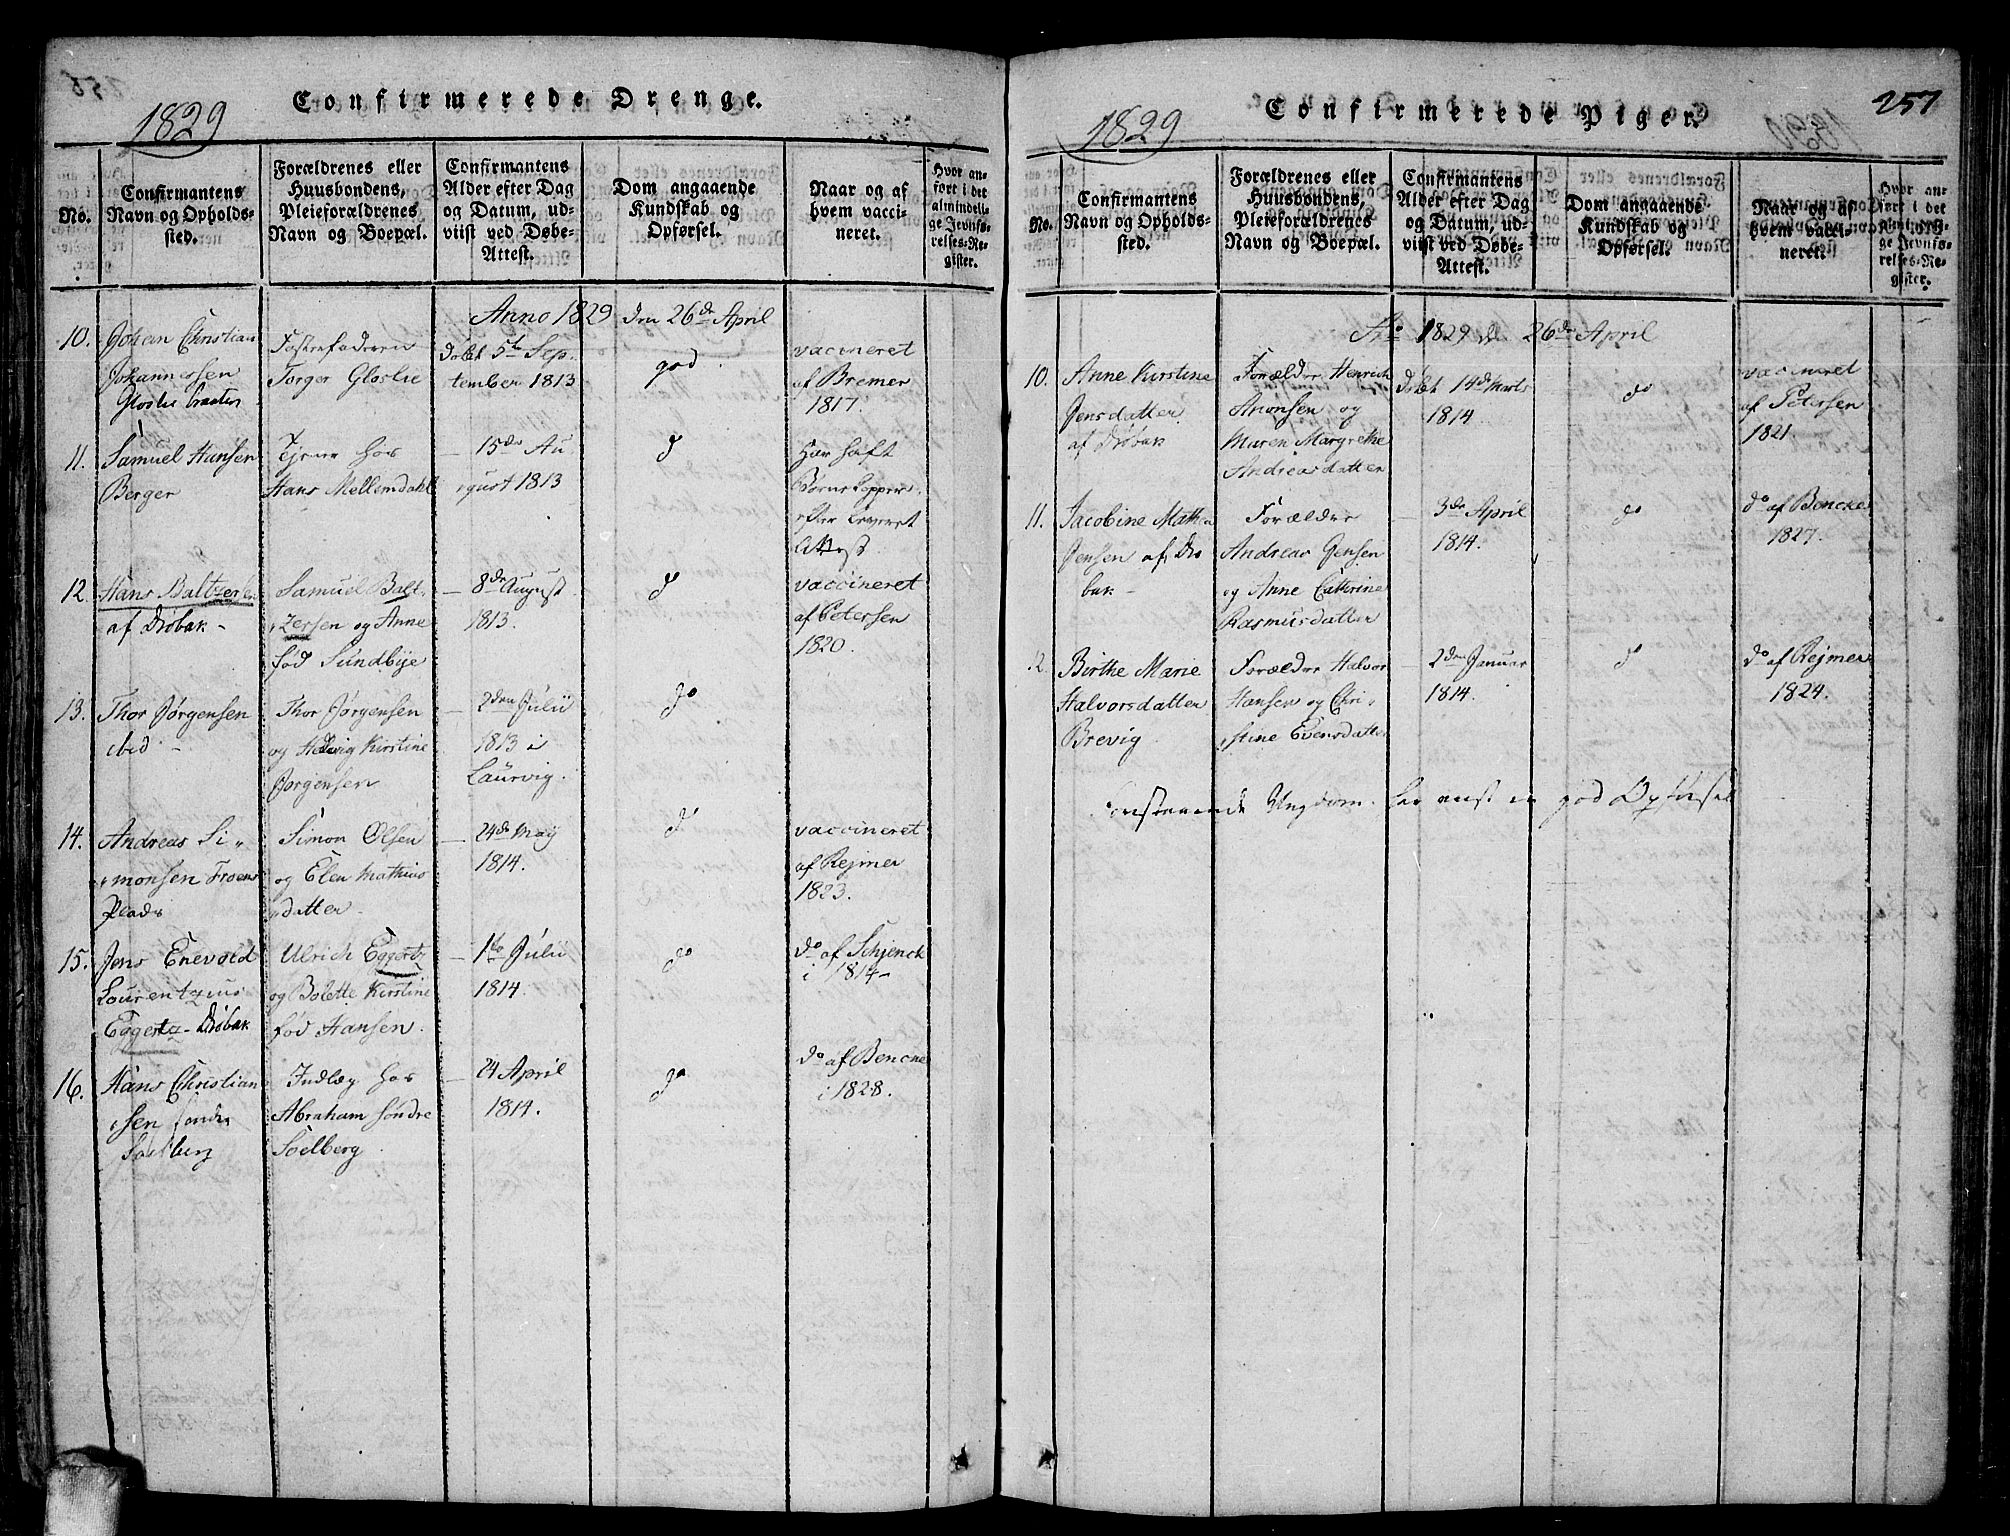 1829
Confirmerede Drenge.
No.
Confirmantens
Navn og Opholds-
sted.
Forældrenes eller
Huusbondens,
Pleieforældrenes
Navn og Boepæl.
Confirmantens
Alder efter Dag
og Datum, ud-
viist ved Døbe-
Attest.
Dom angaaende
Kundskab og
Opførsel.
Naar og af
hvem vacci-
neret.
Hvor an-
ført i det
almindeli-
ge Jevnfø-
relses-Re-
gister.
Anno 1829 den 26de April
10.
Johan Christian
Johannessen
Gloslie
Fosterfaderen
Torger Gloslie
Døbt 5t Sep-
tember 1813
god
vaccineret
af Bremer
1817.
11.
Samuel Hansen
Berger
Tjener hos
Hans Mellemdahl
— 15de Au
gust 1813
do
Har haft
Børnekopper
efter leveret
Attest.
12.
Hans Baltzersen
af Drøbak –
Samuel Balt-
zersen og Anne
fød Sundbye
— 8de August
1813.
do
vaccineret
af Petersen
1820.
13.
Thor Jørgensen
ibid –
Thor Jørgensen
og Hedvig Kirstine
Jørgensen
— 2den Julii
1813 i
Laurvig.
do
14.
Andreas Si-
monsen Froens
Plads
Simon Olsen
og Elen Mathias
datter
— 24de May
1814.
do
vaccineret
af Rejmer
1823.
15.
Jens Enevold
Laurentzius
Eggertz – Drøbak
Ulrich Eggertz
og Bolette Kirstine
fød Hansen.
— 1te Julii
1814.
do
do af Schjenck
i 1814 –
16.
Hans Christian
sen søndre
Soelberg
Indlæg hos
Abraham søndre
Soelberg
— 24 April
1814.
do
do af Bencke
i 1828.
1829
Confirmerede Piger.
257
No.
Confirmantens
Navn og Opholds-
sted.
Forældrenes eller
Huusbondens,
Pleieforældrenes
Navn og Boepæl.
Confirmantens
Alder efter Dag
og Datum, ud-
viist ved Døbe-
Attest.
Dom angaaende
Kundskab og
Opførsel.
Naar og af
hvem vacci-
neret.
Hvor an-
ført i det
almindeli-
ge Jevnfø-
relses-Re-
gister.
Ao 1829 d. 26de April
10.
Anne Kirstine
Jensdatter
af Drøbak
Forældre Henrich
Anonsen og
Maren Margrethe
Andreasdatter
Døbt 14de Marts
1814
do
vaccineret
af Petersen
1821.
11.
Jacobine Mathea
Jensen af Drø
bak –
Forældre
Andreas Jensen
og Anne Cathrine
Rasmusdatter
— 3de April
1814.
do
do af Bencke
1827.
12.
Birthe Marie
Halvorsdatter
Brevig
Forældre Halvor
Hansen og Chri-
stine Evensdatter
— 2den Januar
1814.
do
do af Rejmer
1824.
Ungdom har god Opførsel